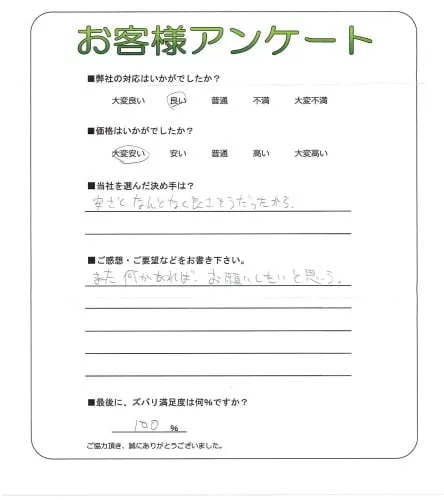 お客様アンケート
■弊社の対応はいかがでしたか?
大変良い 良い 普通 不満 大変不満
■価格はいかがでしたか?
大変安い 安い 普通 高い 大変高い
■当社を選んだ決め手は?
安さと なんとなく良さそうだったから.
■ご感想・ご要望などをお書き下さい。
また 何かあれば、お願いしたいと思う。
■最後に、ズバリ満足度は何%ですか?
100 %
ご協力頂き、誠にありがとうございました。